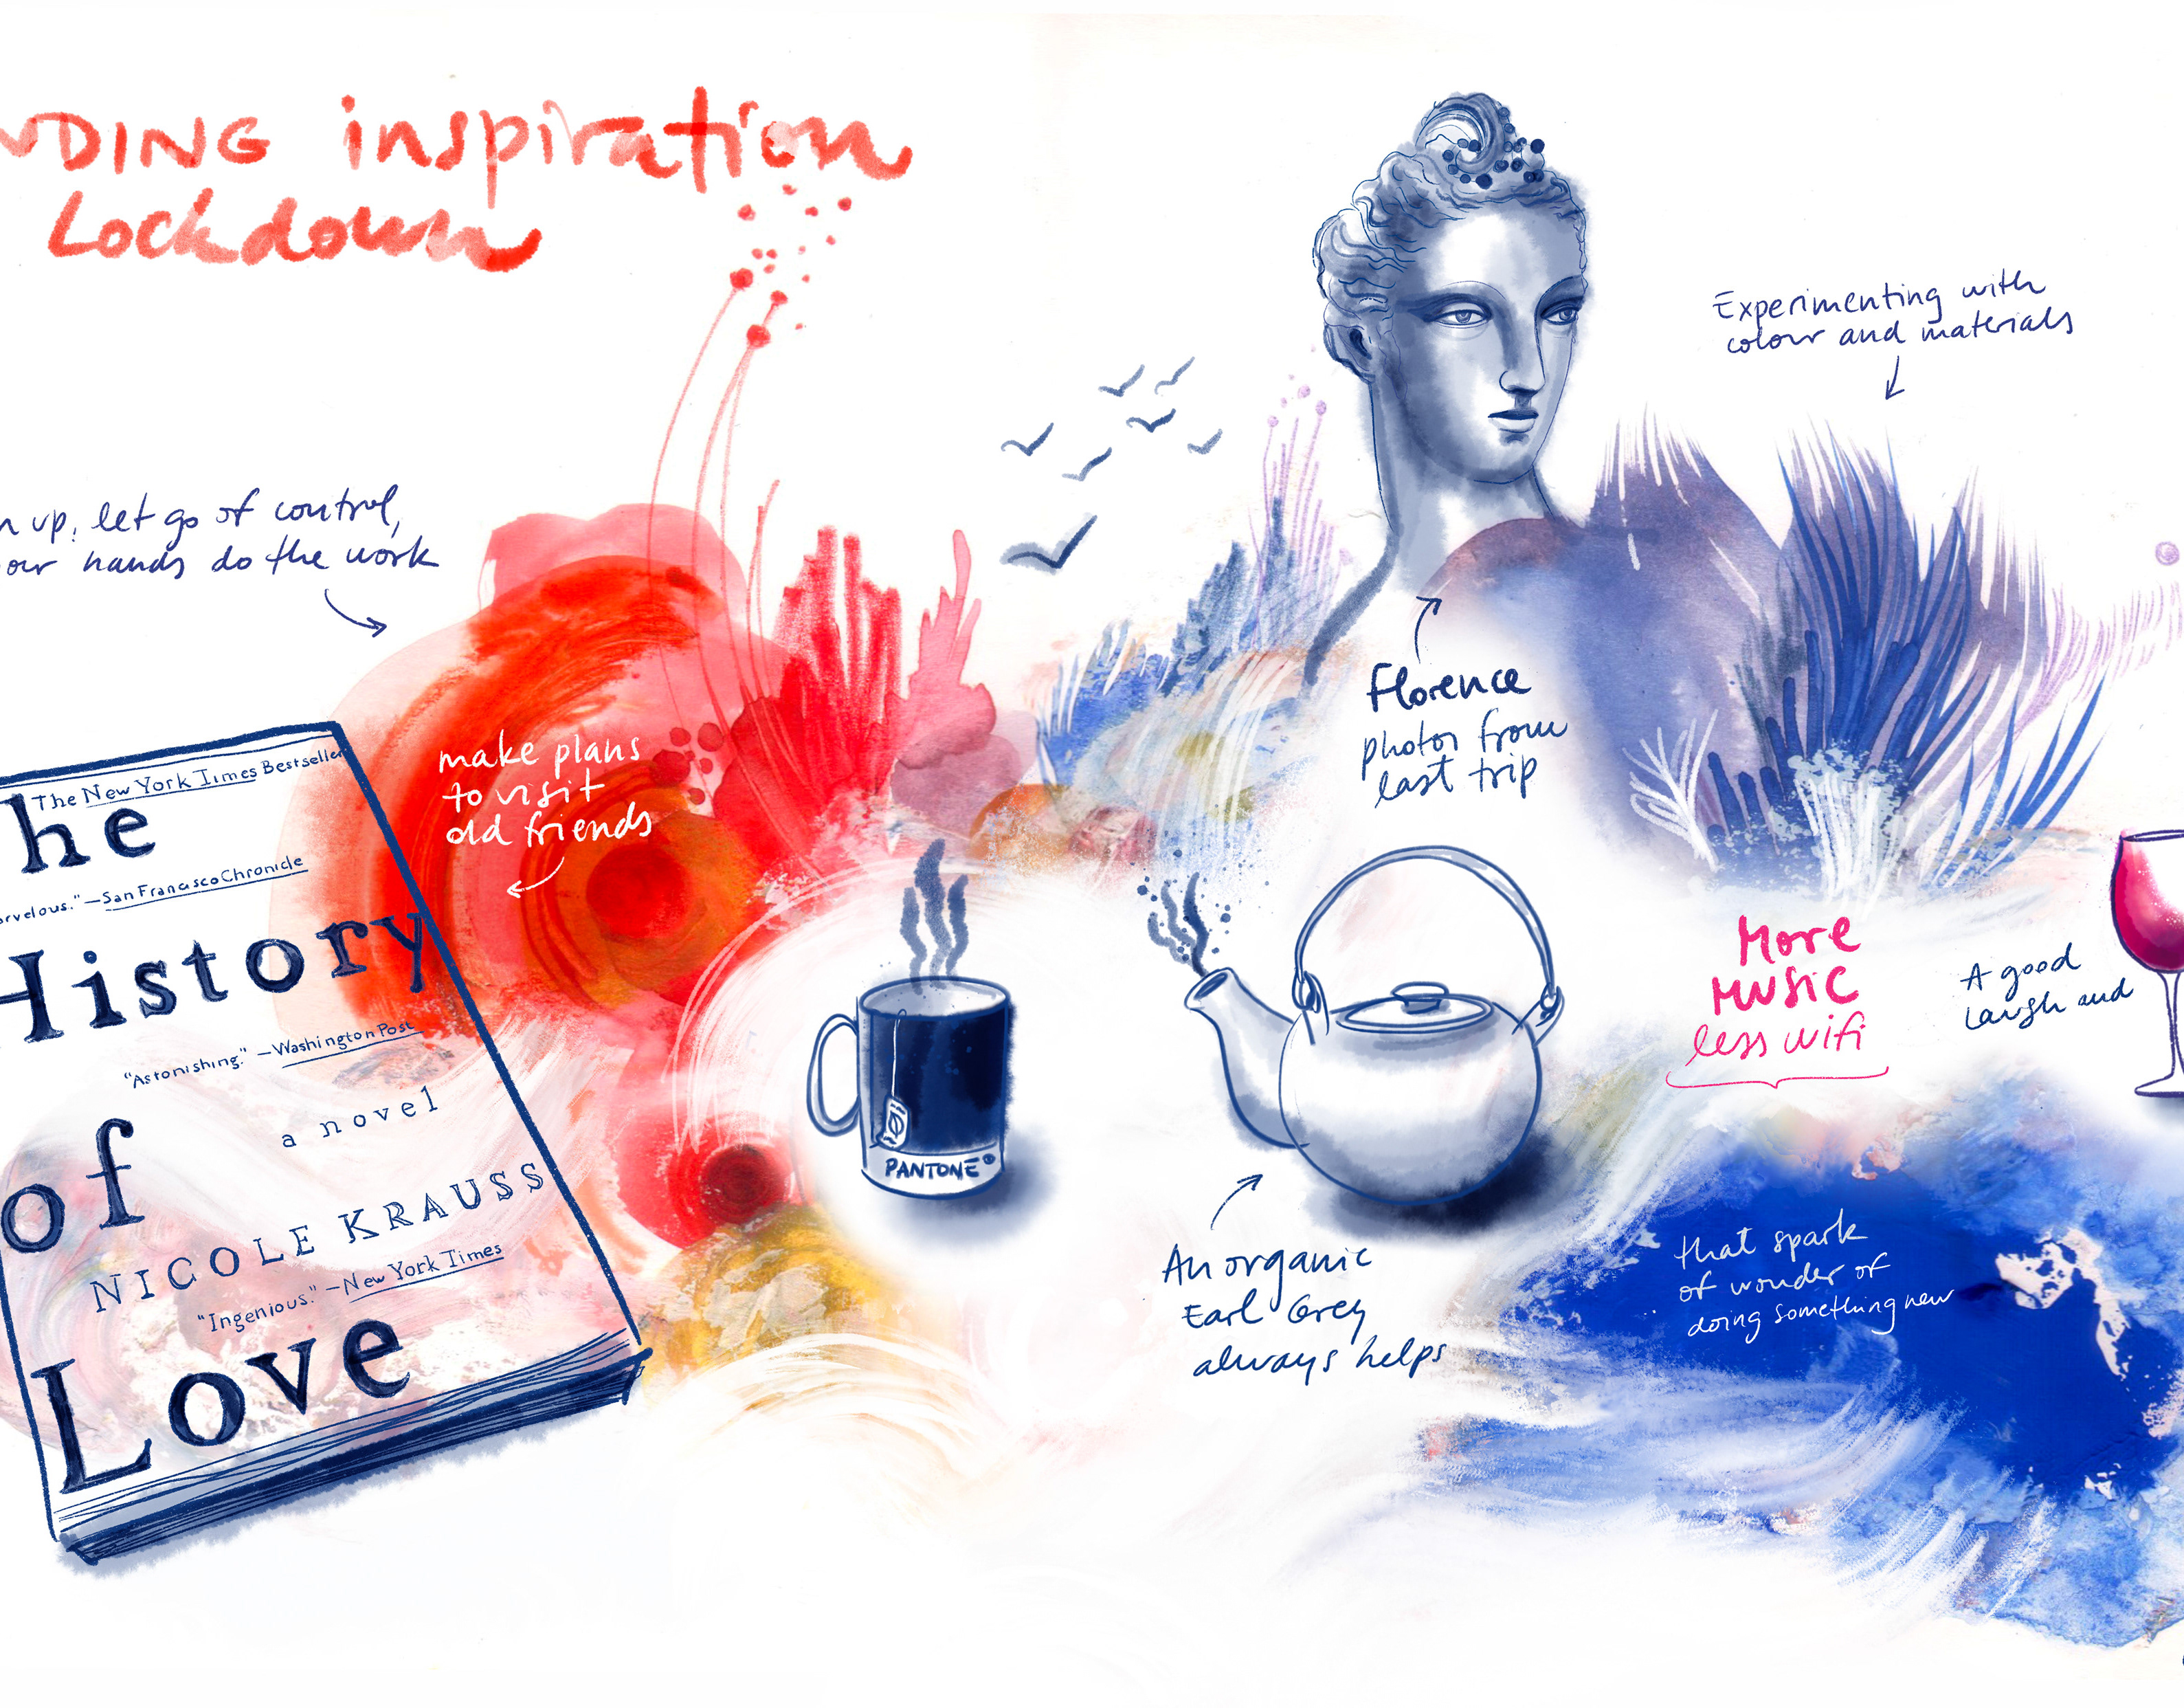 NDING inspiration
Lockdown
n up, let go of control,
our hands do the work
The New York Times Bestseller
he
arvelous." —San Francisco Chronicle
History
"Astonishing." —Washington Post
a novel
of
NICOLE KRAUSS
"Ingenious." —New York Times
Love
make plans
to visit
old friends
PANTONE®
An organic
Earl Grey
always helps
Florence
photos from
last trip
Experimenting with
colour and materials
More
Music
less wifi
A good
laugh and
that spark
of wonder of
doing something new